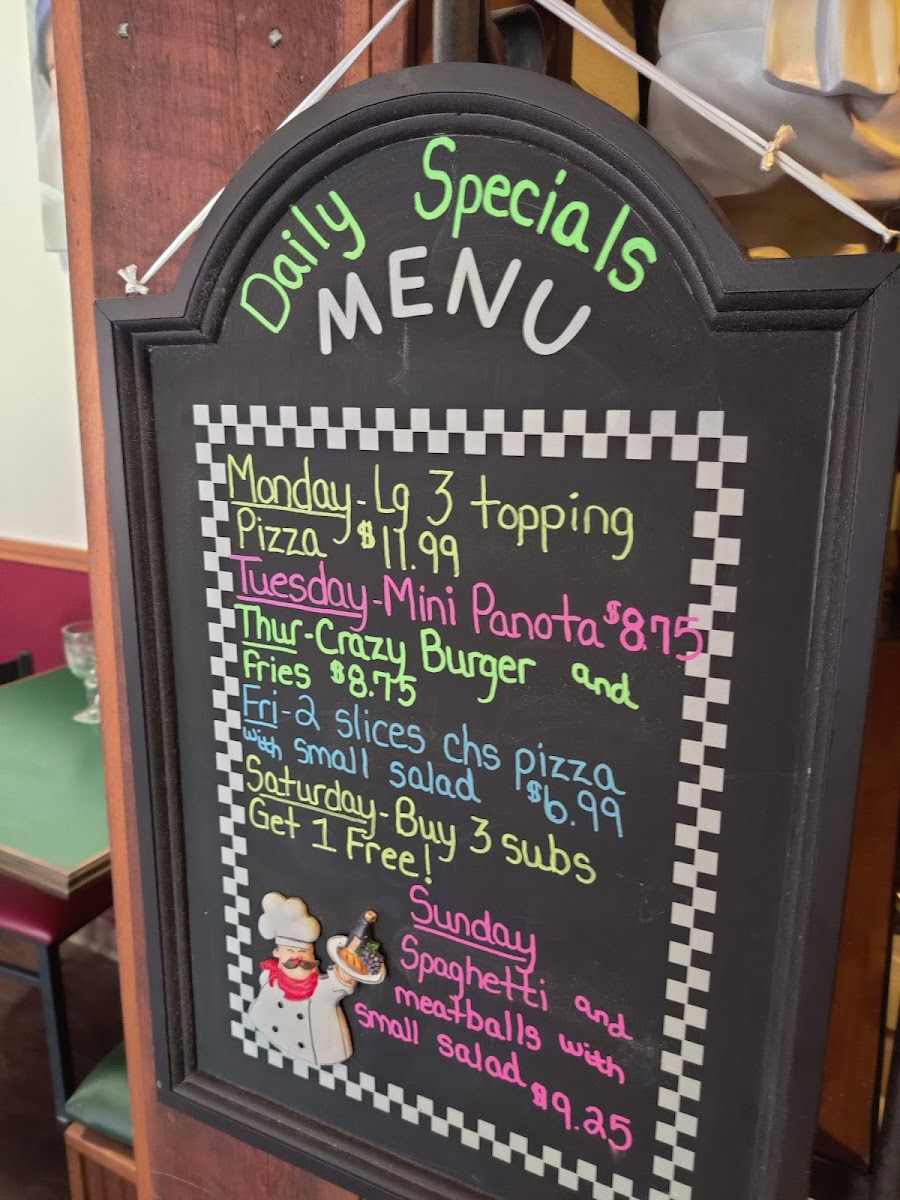 Daily Specials
MENU
Monday-Lg 3 topping
Pizza $11.99
Tuesday-Mini Panota $8.75
Thur-Crazy Burger and
Fries $8.75
Fri-2 slices chs pizza
with small salad $6.99
Saturday-Buy 3 subs
Get 1 Free!
Sunday
Spaghetti and
meatballs with
small salad $9.25